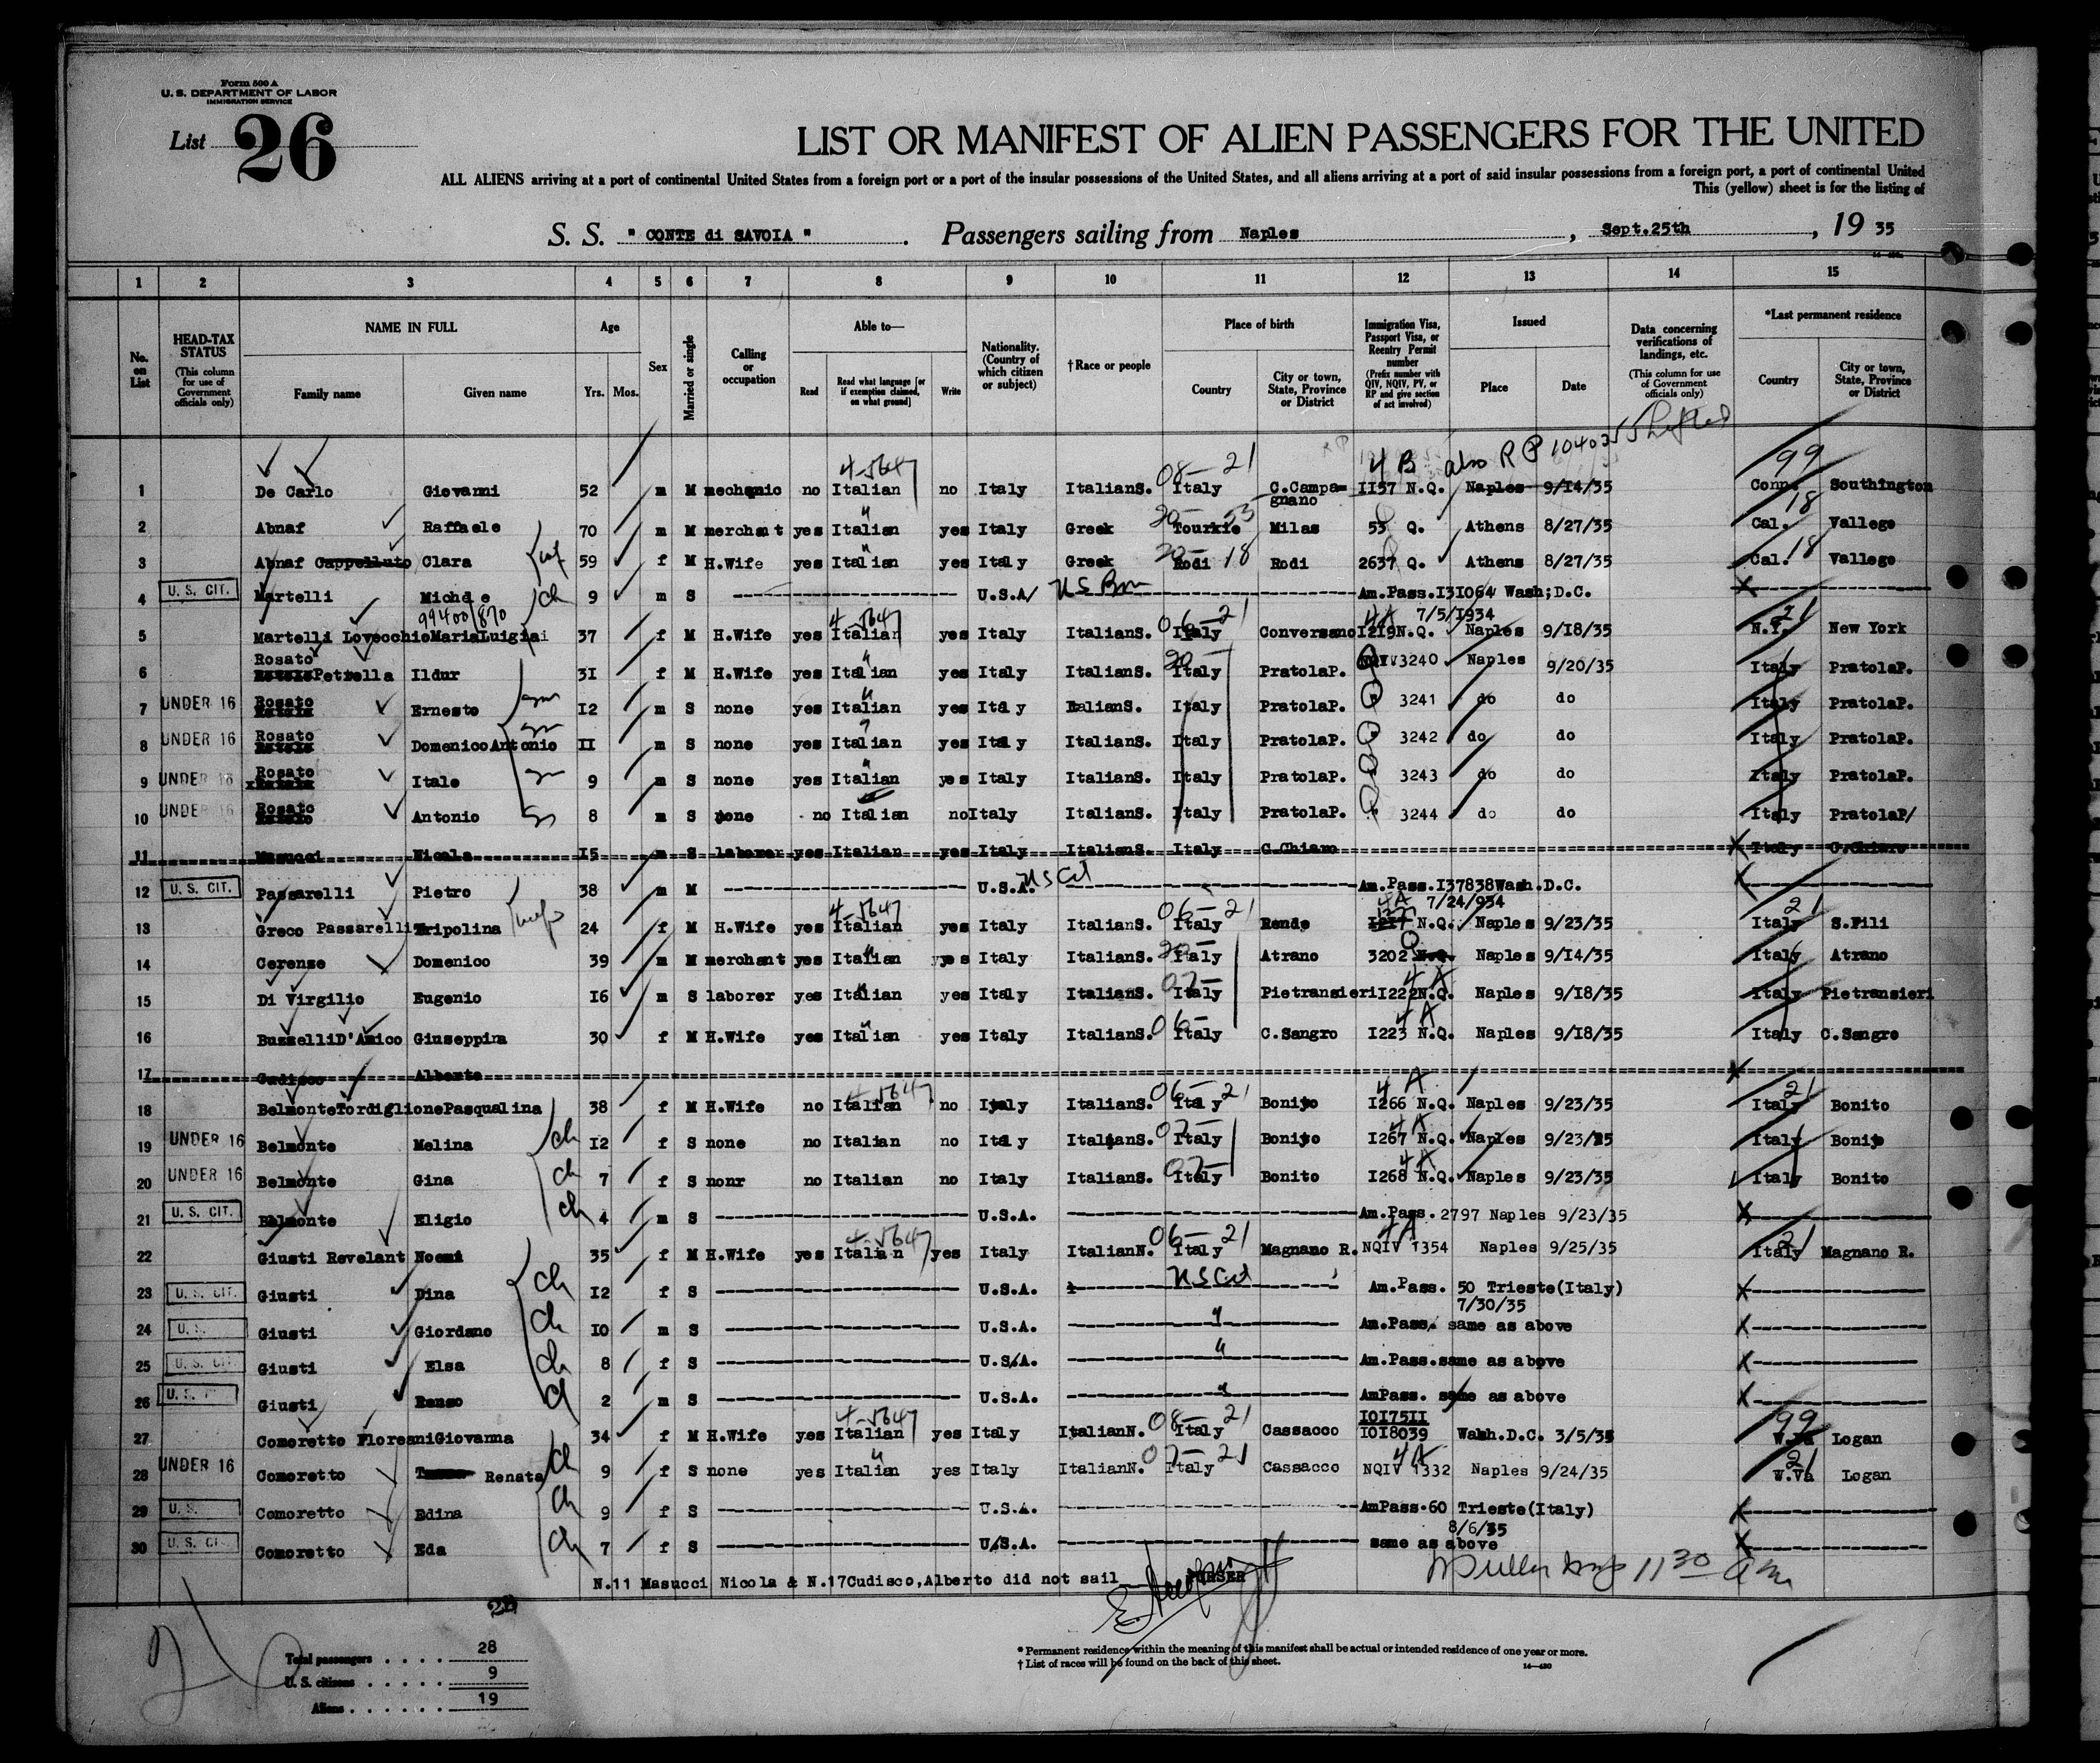 Form 500 A
U. S. DEPARTMENT OF LABOR
IMMIGRATION SERVICE
List 26
LIST OR MANIFEST OF ALIEN PASSENGERS FOR THE UNITED
ALL ALIENS arriving at a port of continental United States from a foreign port or a port of the insular possessions of the United States, and all aliens arriving at a port of said insular possessions from a foreign port, a port of continental United
This (yellow) sheet is for the listing of
S. S. " CONTE di SAVOIA " . Passengers sailing from Naples , Sept.25th , 19 35
1 2 3 4 5 6 7 8 9 10 11 12 13 14 15
No. on List
HEAD-TAX STATUS (This column for use of Government officials only)
NAME IN FULL Family name Given name
Age Yrs. Mos.
Sex
Married or single
Calling or occupation
Able to— Read Read what language [or if exemption claimed, on what ground] Write
Nationality. (Country of which citizen or subject)
†Race or people
Place of birth Country City or town, State, Province or District
Immigration Visa, Passport Visa, or Reentry Permit number (Prefix number with QIV, NQIV, PV, or RP and give section of act involved)
Issued Place Date
Data concerning verifications of landings, etc. (This column for use of Government officials only)
*Last permanent residence Country City or town, State, Province or District
4-5647 08— 21 4 B also RP 104035 99
1 De Carlo Giovanni 52 m M mechanic no Italian no Italy ItalianS. Italy C.Campagnano 1157 N.Q. Naples 9/14/35 Conn. Southington
2 Abnaf Raffaele 70 m M merchant yes Italian yes Italy Greek Tourkie Milas 55 Q. Athens 8/27/35 Cal. 18 Vallego
3 Abnaf Cappelluto Clara wf 59 f M H.Wife yes Italian yes Italy Greek Rodi 18 Rodi 2637 Q. Athens 8/27/35 Cal. 18 Vallego
4 U. S. CIT. Martelli Michele ch 9 m S U.S.A. US Born Am.Pass.I31064 Wash;D.C. 7/5/1934
99400/870 4-5647 06—21 4A 21
5 Martelli LovecchioMariaLuigia 37 f M H.Wife yes Italian yes Italy ItalianS. Italy Conversano I219N.Q. Naples 9/18/35 N.Y. New York
6 Rosato Petrella Ildur 31 f M H.Wife yes Italian yes Italy ItalianS. Italy PratolaP. NQIV3240 Naples 9/20/35 Italy PratolaP.
7 UNDER 16 Rosato Ernesto 12 m S none yes Italian yes Italy ItalianS. Italy PratolaP. " 3241 do do Italy PratolaP.
8 UNDER 16 Rosato DomenicoAntonio 11 m S none yes Italian yes Italy ItalianS. Italy PratolaP. " 3242 do do Italy PratolaP.
9 UNDER 16 Rosato Italo 9 m S none yes Italian yes Italy ItalianS. Italy PratolaP. " 3243 do do Italy PratolaP.
10 UNDER 16 Rosato Antonio 8 m S none no Italian no Italy ItalianS. Italy PratolaP. " 3244 do do Italy PratolaP/
11 Masucci Nicola I5 m S laborer yes Italian yes Italy ItalianS. Italy C.Chiaro Italy C.Chiaro
12 U. S. CIT. Passarelli Pietro 38 m M U.S.A. US Cit Am.Pass.I37838Wash.D.C. 7/24/934
4-5647 06—21 4A 21
13 Greco Passarelli Tripolina wife 24 f M H.Wife yes Italian yes Italy ItalianS. Italy Rende I217 N.Q. Naples 9/23/35 Italy S.Fili
14 Cerenze Domenico 39 m M merchant yes Italian yes Italy ItalianS. Italy Atrano 3202 N.Q. Naples 9/14/35 Italy Atrano
15 Di Virgilio Eugenio I6 m S laborer yes Italian yes Italy ItalianS. 07— Italy Pietransieri I222N.Q. 4A Naples 9/18/35 Italy Pietransieri
16 BuzzelliD'Amico Giuseppina 30 f M H.Wife yes Italian yes Italy ItalianS. 06— Italy C.Sangro I223 N.Q. 4A Naples 9/18/35 Italy C.Sangro
17 Cudisco Alberto
4-5647 06—21 4A 21
18 BelmonteTordiglionePasqualina 38 f M H.Wife no Italian no Italy ItalianS. Italy Bonito I266 N.Q. Naples 9/23/35 Italy Bonito
19 UNDER 16 Belmonte Melina ch I2 f S none no Italian no Italy ItalianS. 07— Italy Bonito I267 N.Q. 4A Naples 9/23/35 Italy Bonito
20 UNDER 16 Belmonte Gina ch 7 f S nonr no Italian no Italy ItalianS. 07— Italy Bonito I268 N.Q. 4A Naples 9/23/35 Italy Bonito
21 U. S. CIT. Belmonte Eligio ch 4 m S U.S.A. Am.Pass. 2797 Naples 9/23/35
4-5647 06—21 4A 21
22 Giusti Revelant Noemi 35 f M H.Wife yes Italian yes Italy ItalianN. Italy Magnano R. NQIV 1354 Naples 9/25/35 Italy Magnano R.
23 U. S. CIT. Giusti Dina ch I2 f S U.S.A. US Cit Am.Pass. 50 Trieste(Italy) 7/30/35
24 U. S. Giusti Giordano ch I0 m S U.S.A. " Am.Pass. same as above
25 U. S. CIT. Giusti Elsa ch 8 f S U.S.A. " Am.Pass.same as above
26 U. S. Giusti Renzo ch 2 m S U.S.A. " AmPass. same as above
4-5647 08—21 I0I75II 99
27 Comoretto FloreaniGiovanna 34 f M H.Wife yes Italian yes Italy ItalianN. Italy Cassacco I0I8039 Wash.D.C. 3/5/35 W.Va Logan
28 UNDER 16 Comoretto Renata ch 9 f S none yes Italian yes Italy ItalianN. 07—21 Italy Cassacco NQIV 1332 4A Naples 9/24/35 W.Va 21 Logan
29 U. S. Comoretto Edina ch 9 f S U.S.A. AmPass.60 Trieste(Italy) 8/6/35
30 U. S. CIT. Comoretto Eda ch 7 f S U.S.A. same as above
N.11 Masucci Nicola & N.17Cudisco,Alberto did not sail PURSER
11 30 am
Total passengers . . . . 28
U. S. citizens . . . . . 9
Aliens . . . . . . 19
* Permanent residence within the meaning of this manifest shall be actual or intended residence of one year or more.
† List of races will be found on the back of this sheet.
14—430